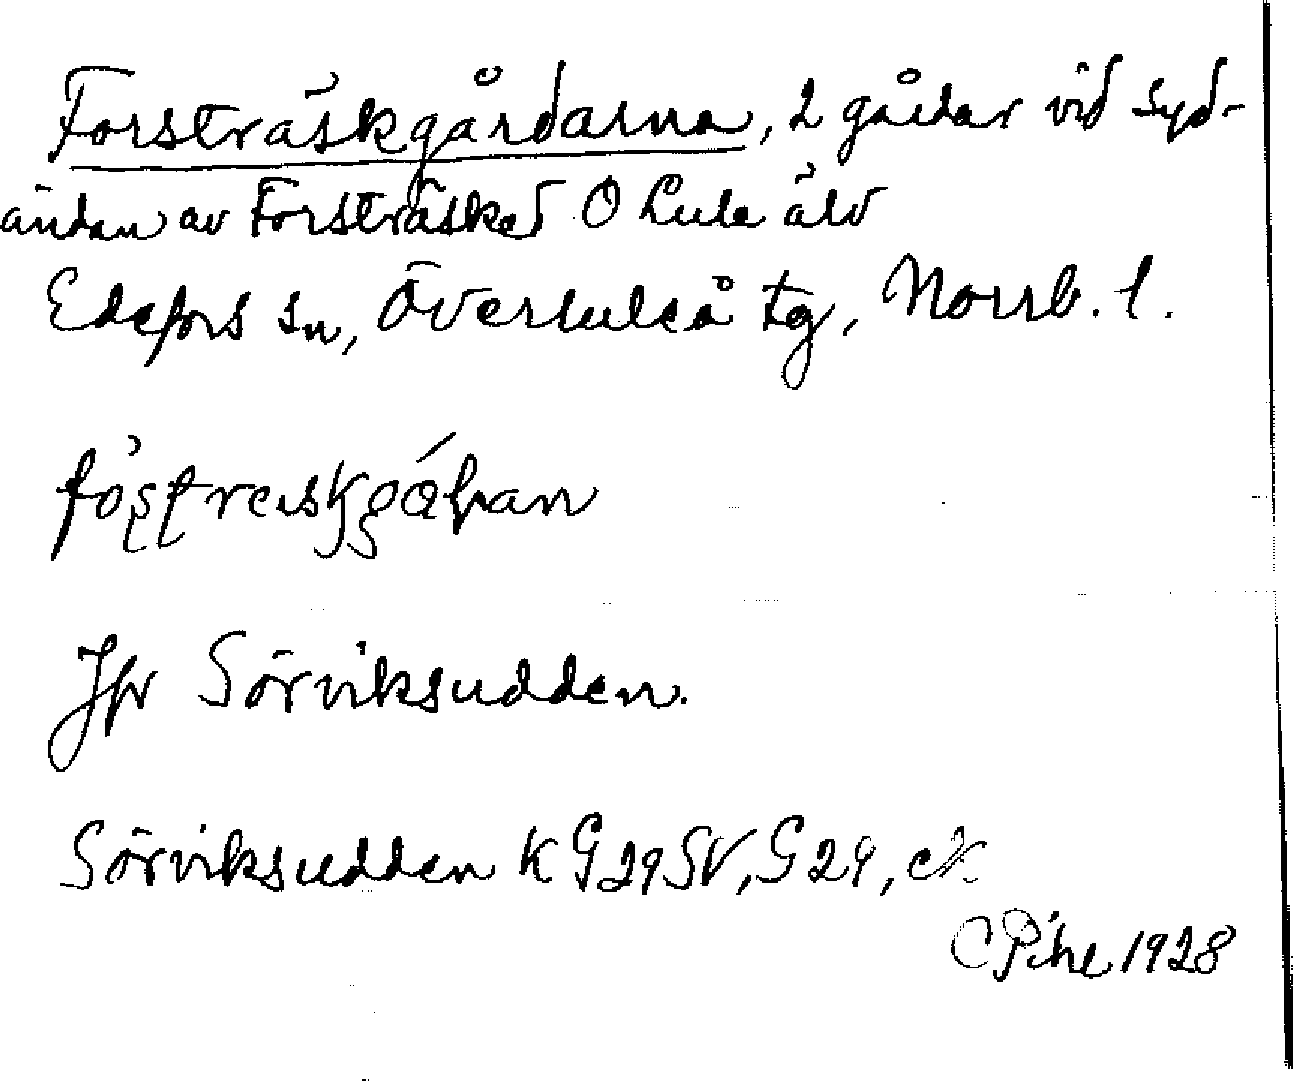 Forsträskgårdarna, 2 gårdar vid syd-
ändan av Forsträsket Ö Lule älv
Edefors sn, Överluleå tg, Norrb. l.
Jfr Sörviksudden.
Sörviksudden K G29SV, G29, ek
C Pihl 1928